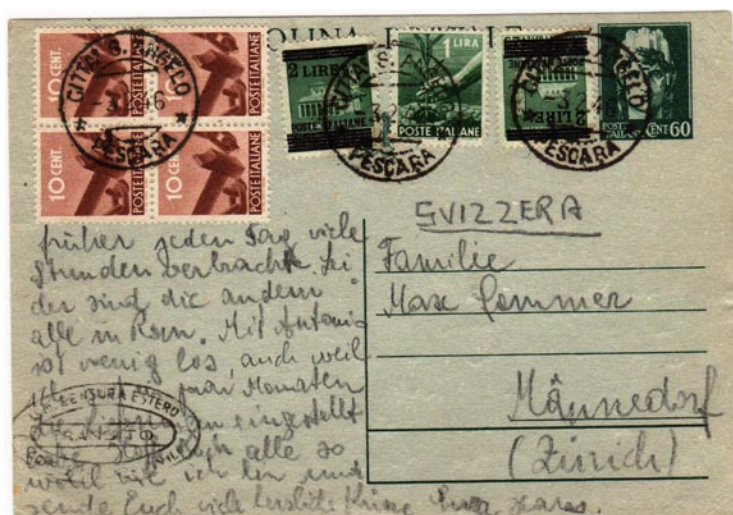 CARTOLINA POSTALE
10 CENT. POSTE ITALIANE
10 CENT. POSTE ITALIANE
10 CENT. POSTE ITALIANE
10 CENT. POSTE ITALIANE
CITTA' S. ANGELO
-3.2.46
PESCARA
2 LIRE
POSTE ITALIANE
1 LIRA
POSTE ITALIANE
CITTA' S. ANGELO
3.2.46
PESCARA
2 LIRE
POSTE ITALIANE
CITTA' S. ANGELO
-3.2.46
PESCARA
POSTE ITALIANE CENT 60
früher jeden Tag viele
Stunden verbrachte. Lei
der sind die andern
alle in Rom. Mit Antonio
ist wenig los, auch weil
ich paar Monaten
eingestellt
habe. Hoff Euch alle so
wohl wie ich bin und
sende Euch viele herzliche Küsse Euer
CENSURA ESTERO
TRANSITO
SVIZZERA
Familie
Max Sommer
Männedorf
(Zürich)